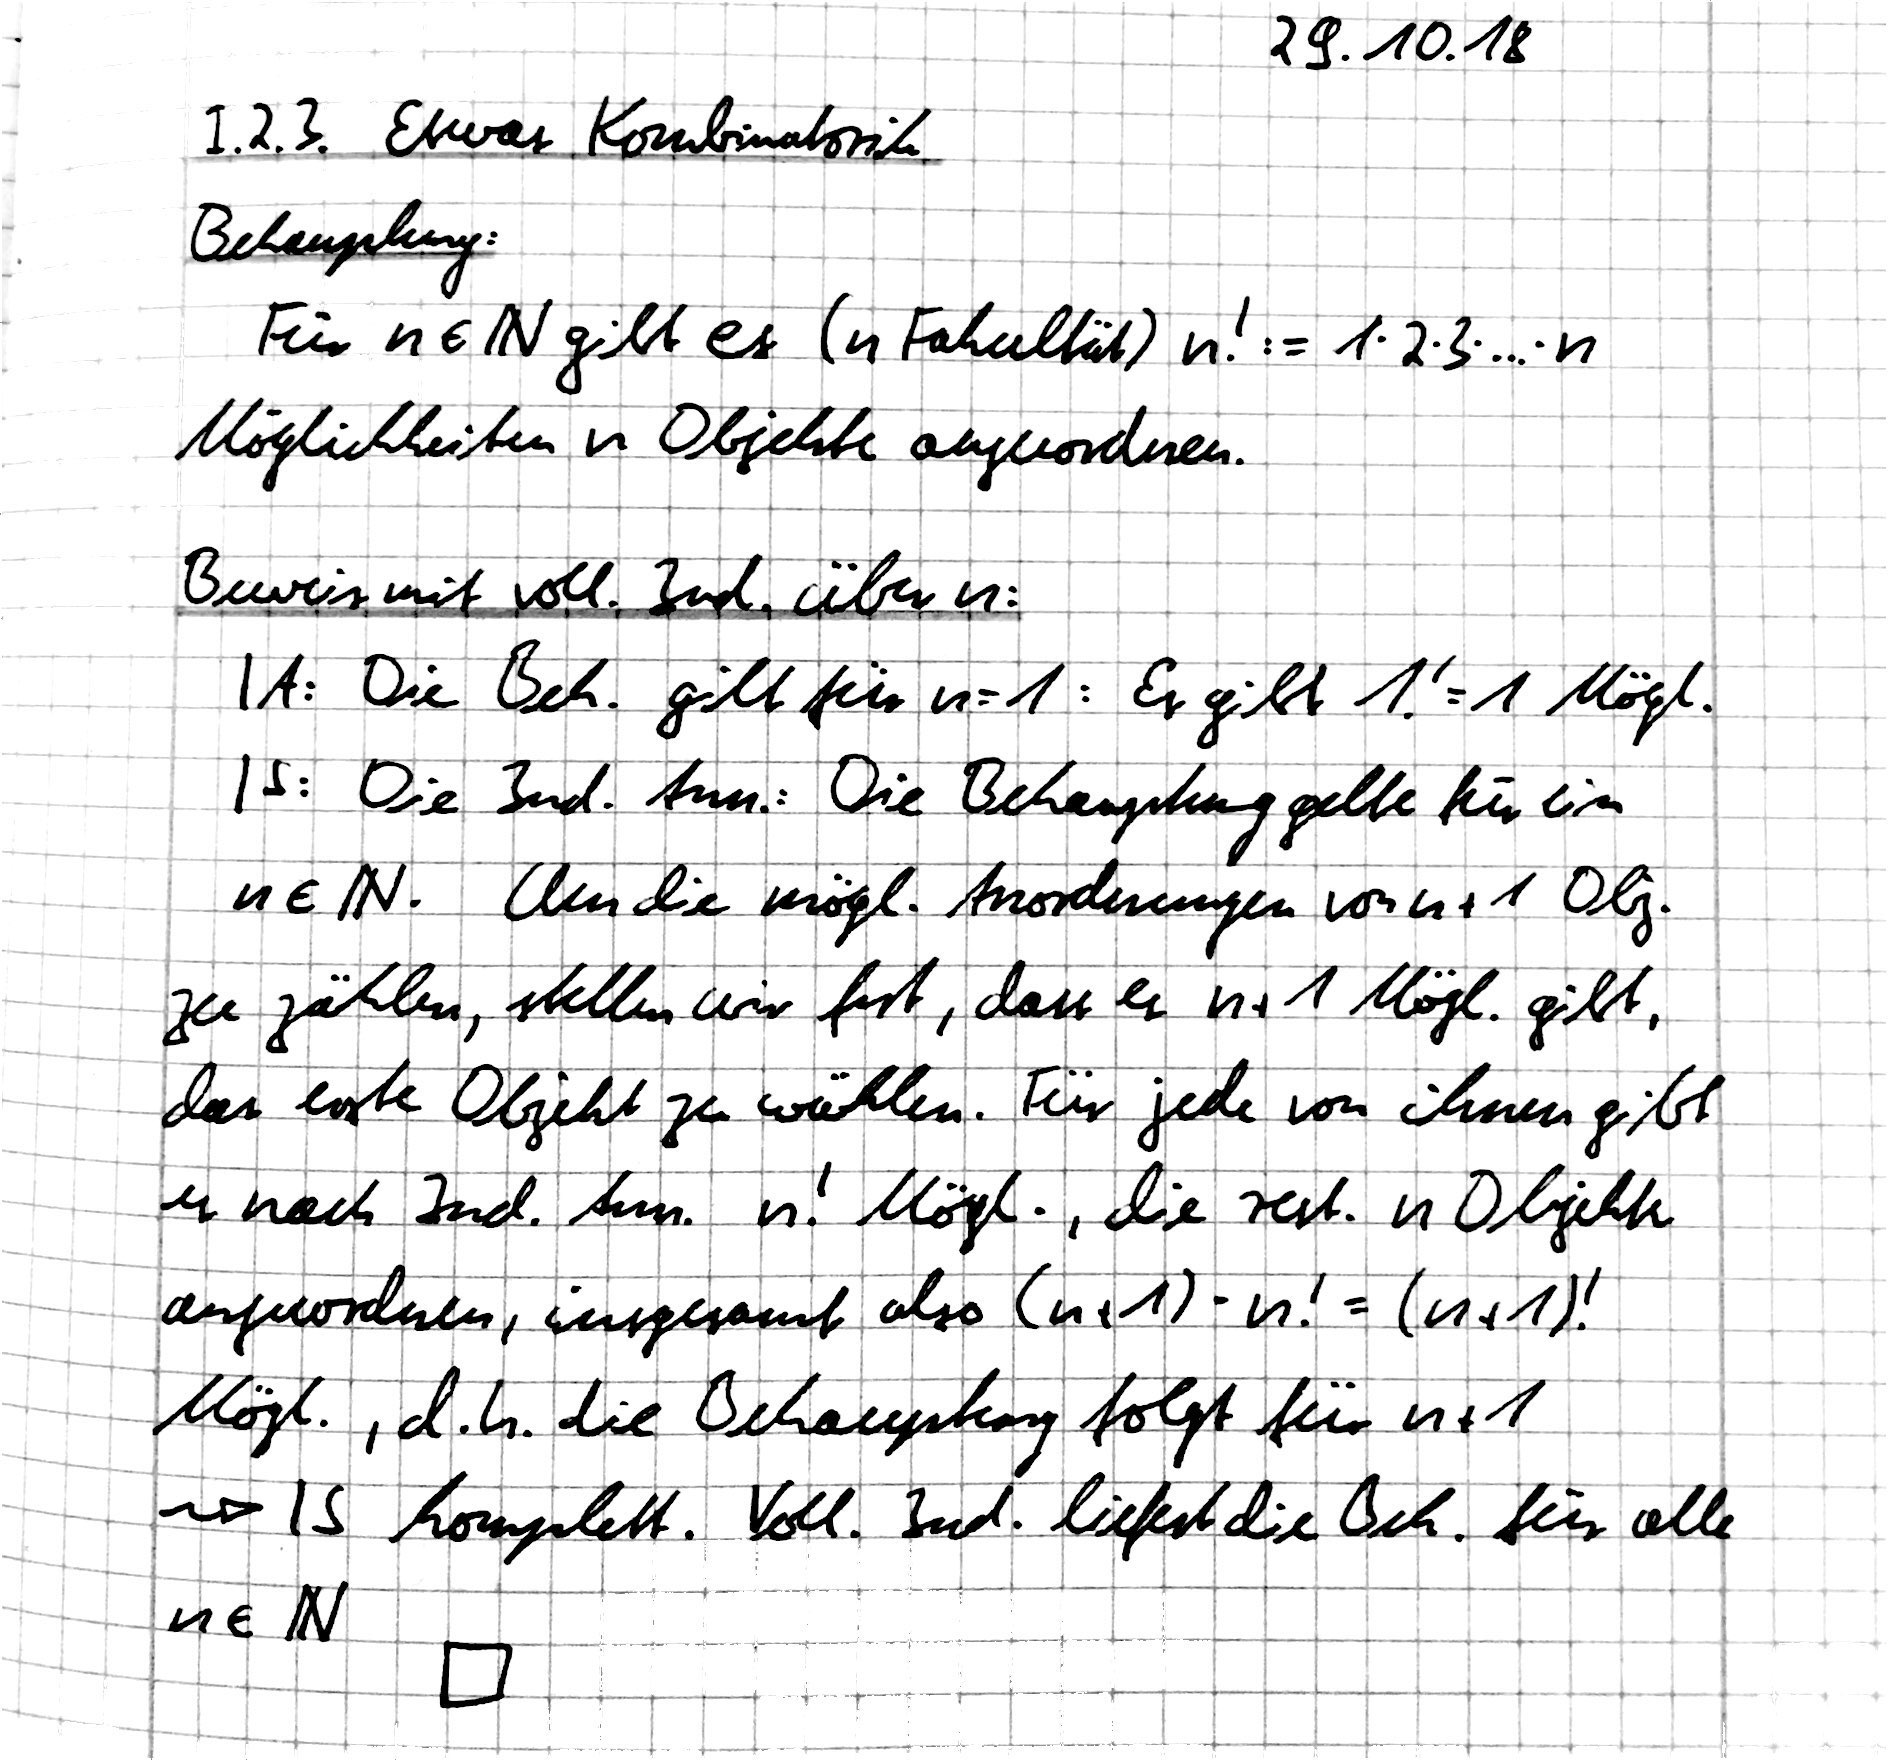 29.10.18
I.2.3. Etwas Kombinatorik
Behauptung:
Für n ∈ ℕ gibt es (n Fakultät) n! := 1·2·3·...·n
Möglichkeiten n Objekte anzuordnen.
Beweis mit voll. Ind. über n:
IA: Die Beh. gilt für n=1: Es gibt 1!=1 Mögl.
IS: Die Ind. Ann.: Die Behauptung gelte für ein
n ∈ ℕ. Um die mögl. Anordnungen von n+1 Obj.
zu zählen, stellen wir fest, dass es n+1 Mögl. gibt,
das erste Objekt zu wählen. Für jede von ihnen gibt
es nach Ind. Ann. n! Mögl., die rest. n Objekte
anzuordnen, insgesamt also (n+1)·n! = (n+1)!
Mögl., d.h. die Behauptung folgt für n+1
⇝ IS komplett. Voll. Ind. liefert die Beh. für alle
n ∈ ℕ
□